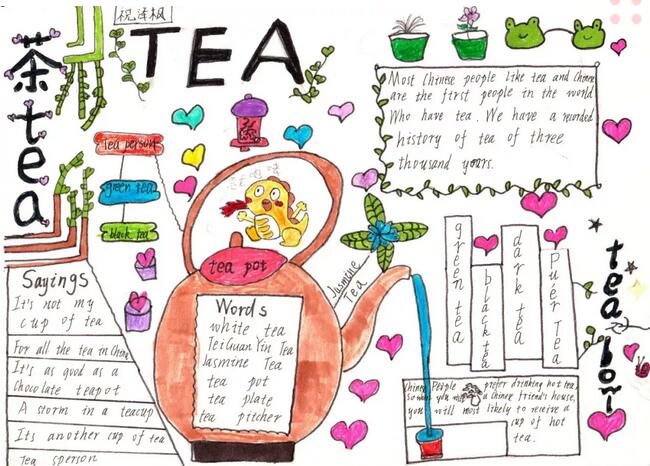 TEA
茶
tea
Most Chinese people like tea and Chinese
are the first people in the world
Who have tea. We have a recorded
history of tea of three
thousand years.
tea person
green tea
black tea
tea pot
Jasmine
Tea
Words
white tea
TeiGuanYin Tea
Jasmine Tea
tea pot
tea plate
tea pitcher
Sayings
It's not my
cup of tea
For all the tea in China
It's as good as a
chocolate teapot
A storm in a teacup
Its another cup of tea
Tea sperson
green tea
black tea
dark tea
Puer Tea
tea
Chinese People prefer drinking hot tea,
so when you a Chinese friend's house,
you will most likely to receive a
cup of hot
tea.